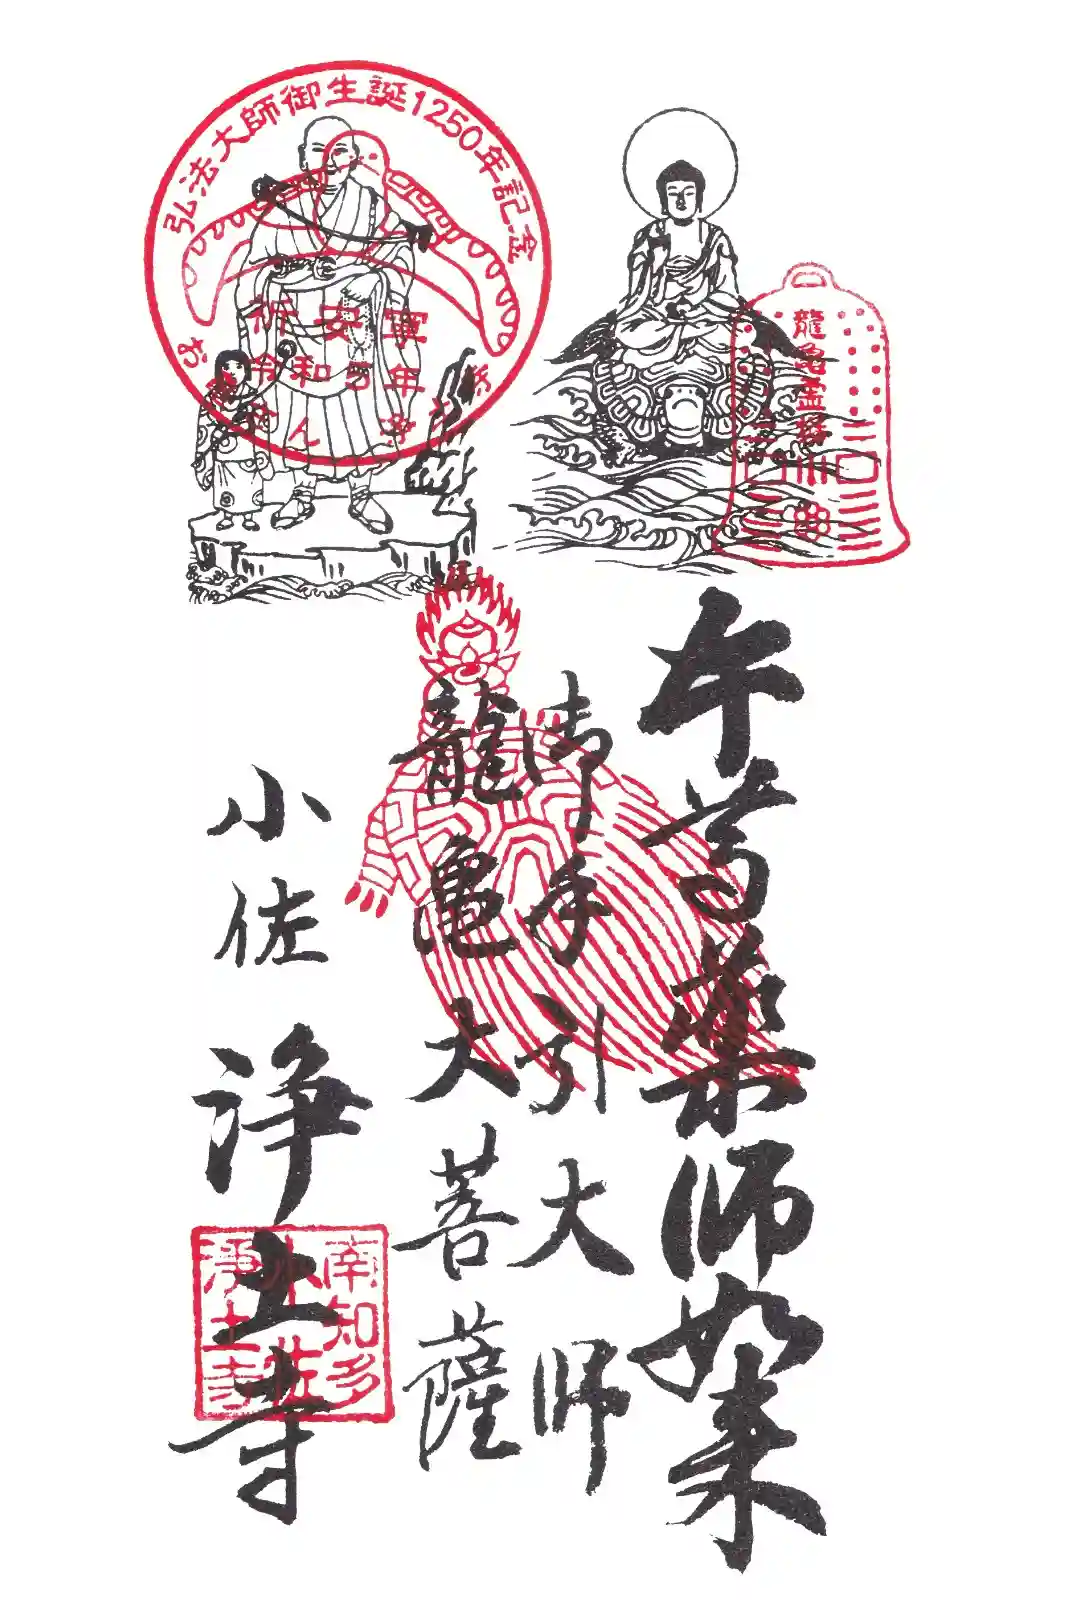 弘法大師御生誕1250年記念
祈安寧
令和5年
龍亀霊鐘
牛蒡薬師如来
御手引大師
龍亀大菩薩
小佐
浄土寺
南知多
小佐
浄土寺